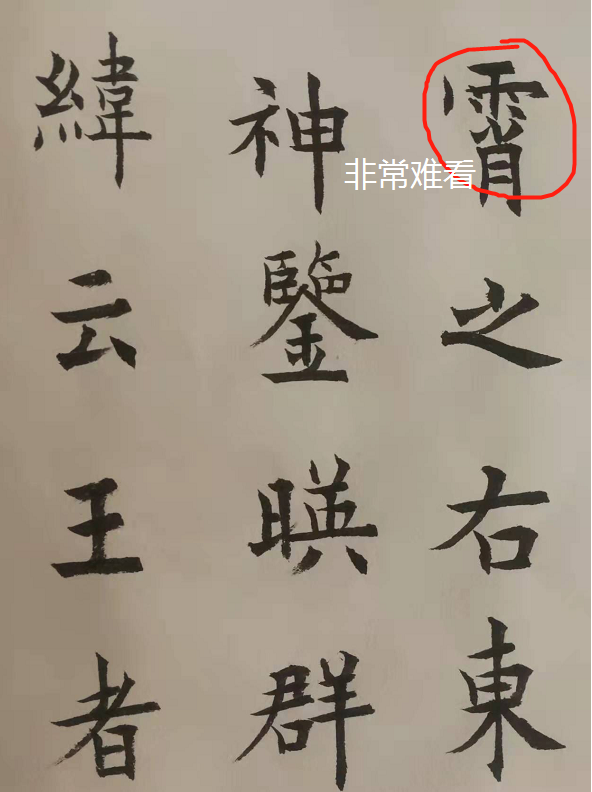 霄之右東
神鑒暎群
緯云王者
非常难看